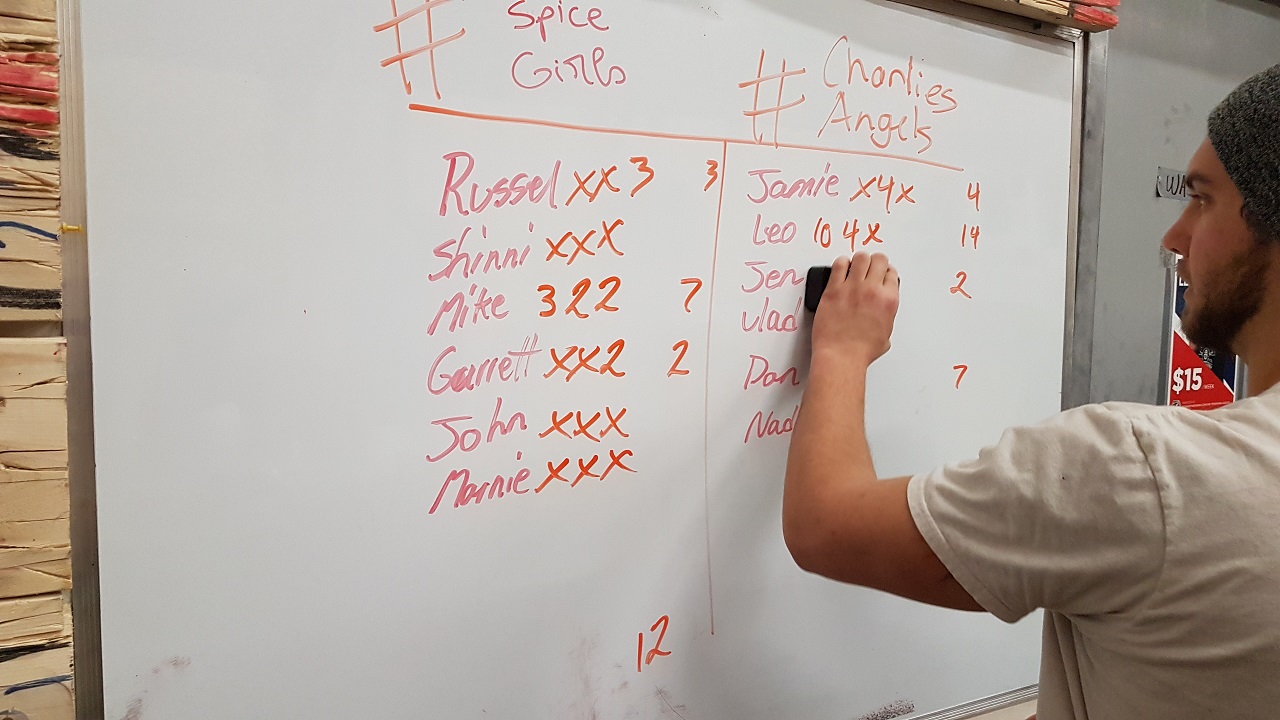 # Spice
Girls
# Charlies
Angels
Russel xx3 3
Shinni xxx
Mike 322 7
Garrett xx2 2
John xxx
Marnie xxx
12
Jamie x4x 4
Leo 10 4x 14
Jen 2
Vlad
Dan 7
Nad
WA
$15